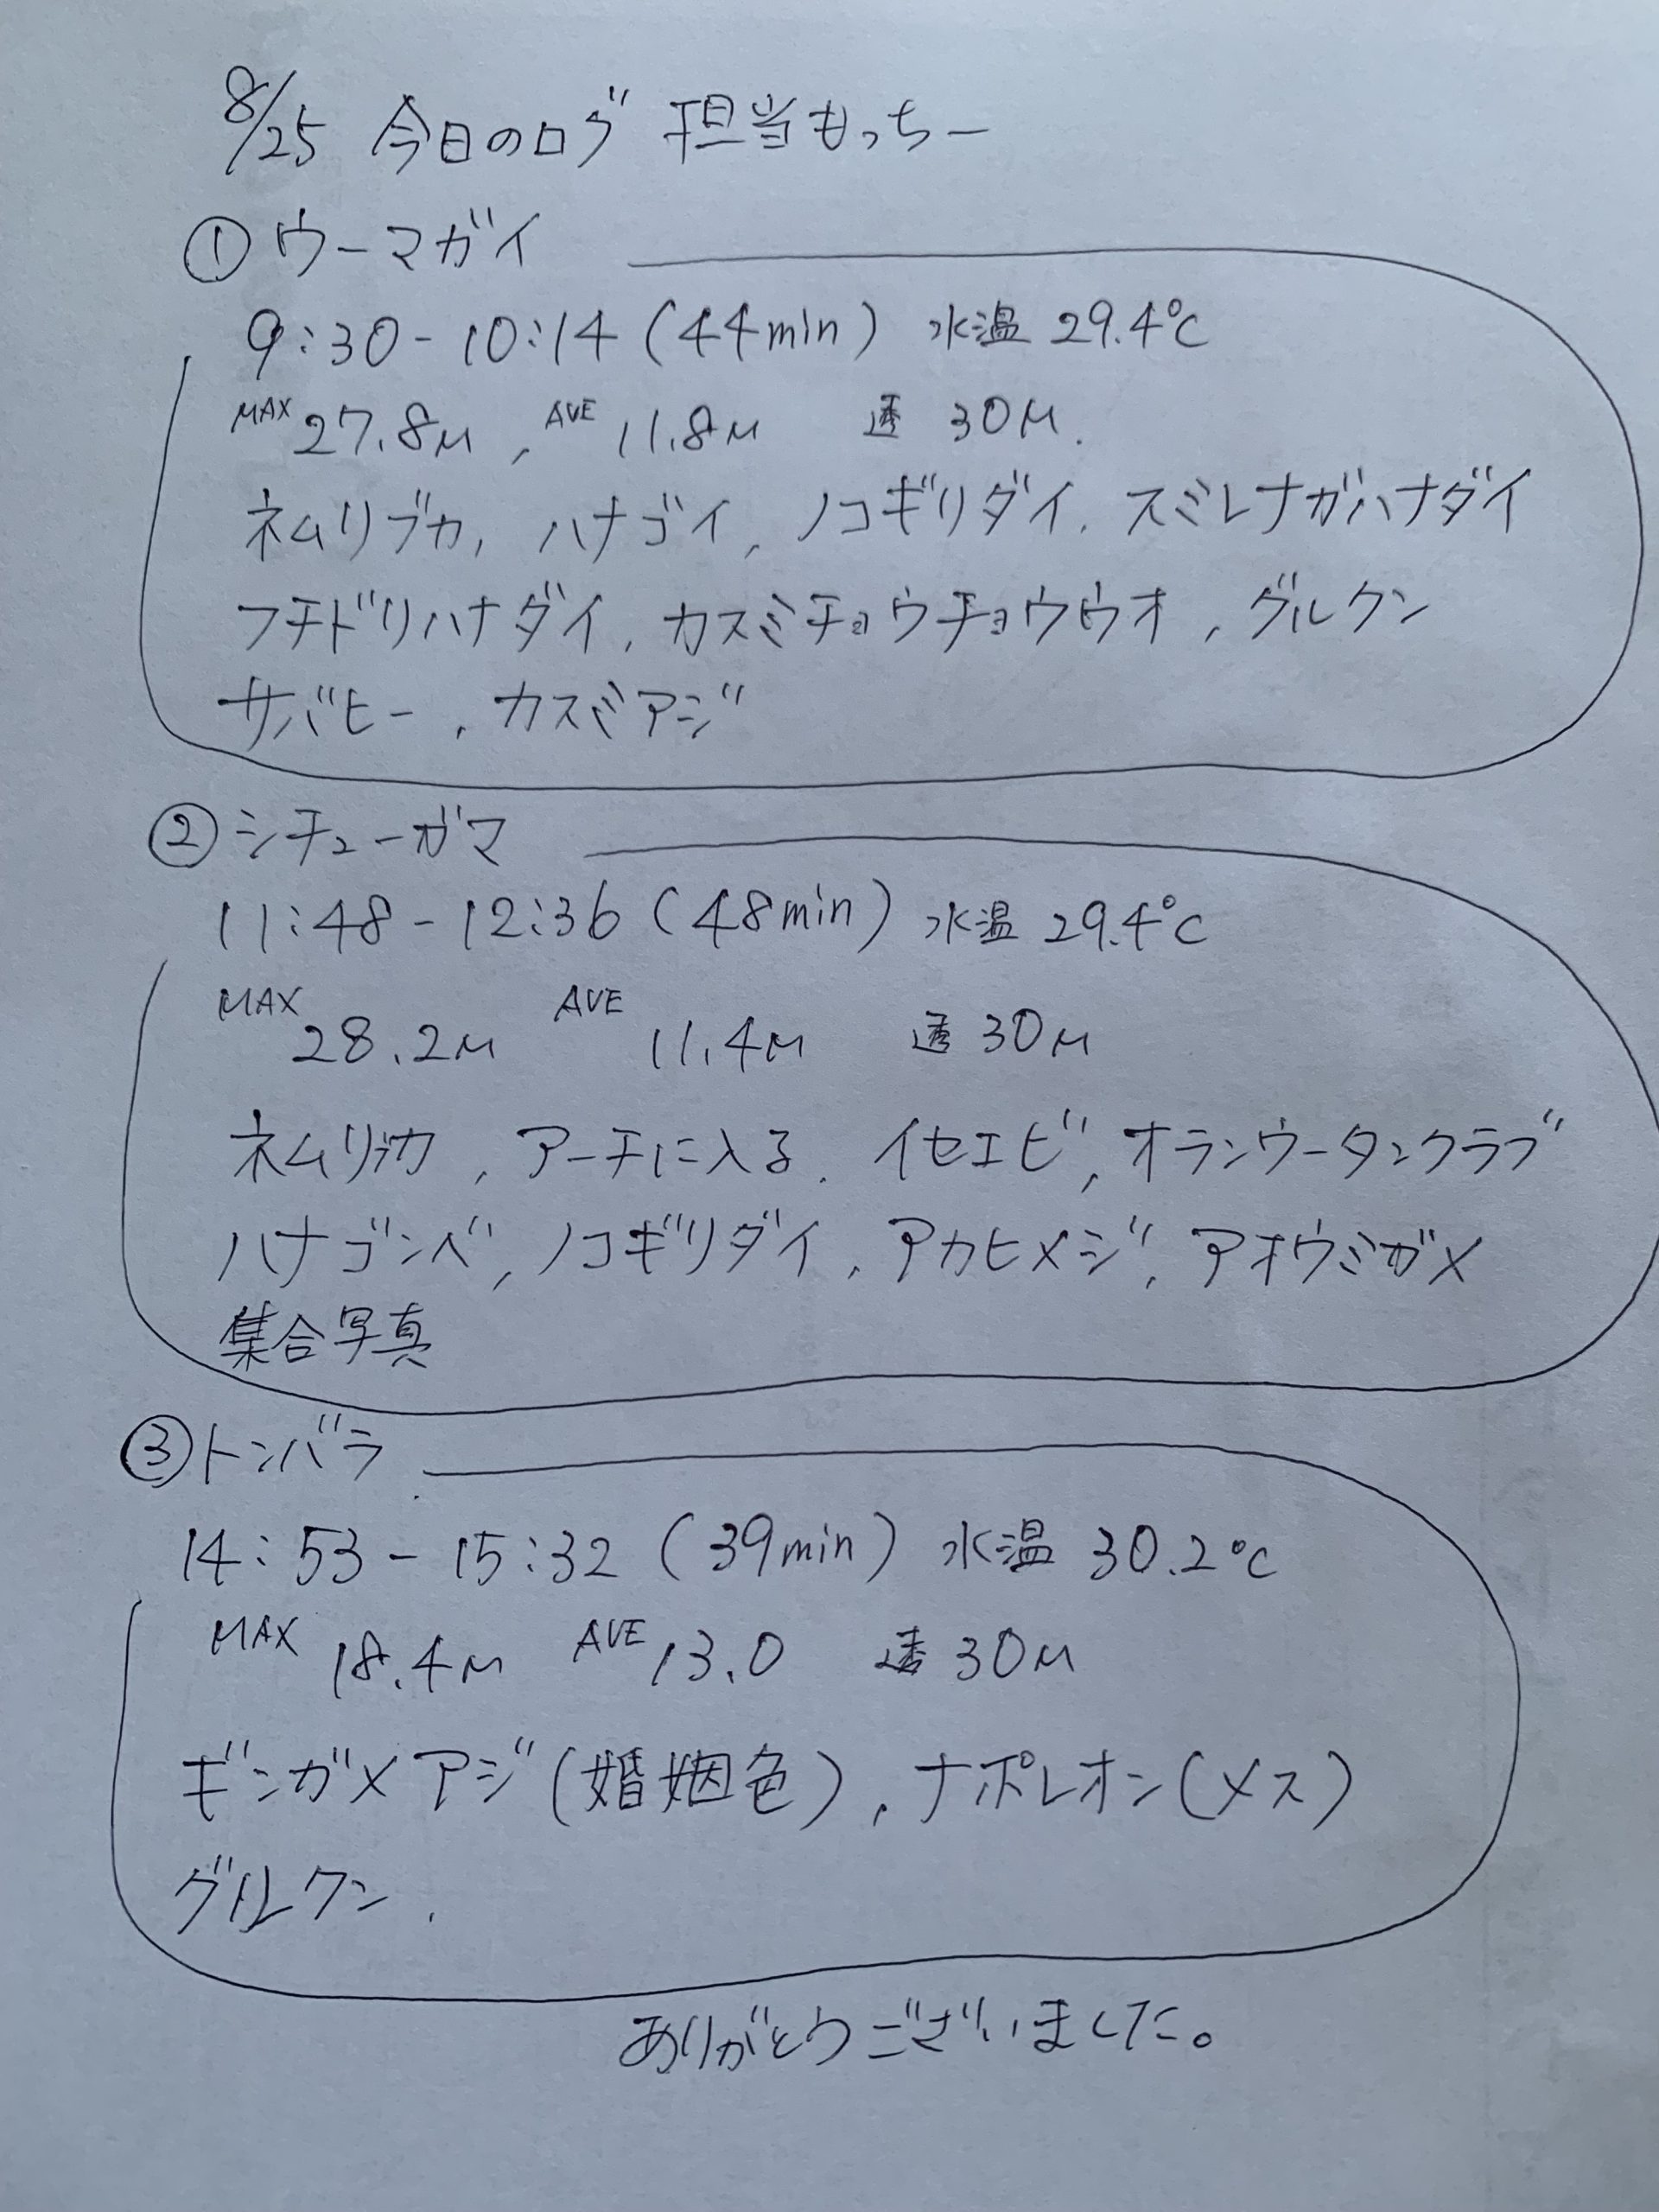 8/25 今日のログ 担当もっちー
① ウーマガイ
9:30-10:14 (44min) 水温 29.4℃
MAX 27.8M, AVE 11.8M 透 30M.
ネムリブカ, ハナゴイ, ノコギリダイ, スミレナガハナダイ
フチドリハナダイ, カスミチョウチョウウオ, グルクン
サバヒー, カスミアジ
② シチューガマ
11:48-12:36 (48min) 水温 29.4℃
MAX 28.2M AVE 11.4M 透 30M
ネムリブカ, アーチに入る, イセエビ, オランウータンクラブ
ハナゴンベ, ノコギリダイ, アカヒメジ, アオウミガメ
集合写真
③ トンバラ
14:53-15:32 (39min) 水温 30.2℃
MAX 18.4M AVE 13.0 透 30M
ギンガメアジ(婚姻色), ナポレオン(メス)
グルクン.
ありがとうございました。